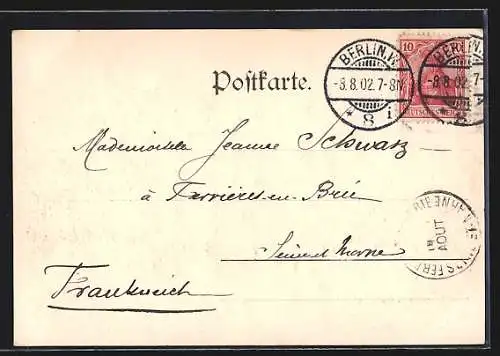 Postkarte.
10
BERLIN.W.
-8.8.02.7-8N.
* 8 i
BERLIN.W.
-8.8.02.7-
Mademoiselle Jeanne Schwarz
à Ferrières-en-Brie
AOUT
Seine et Marne
Frankreich